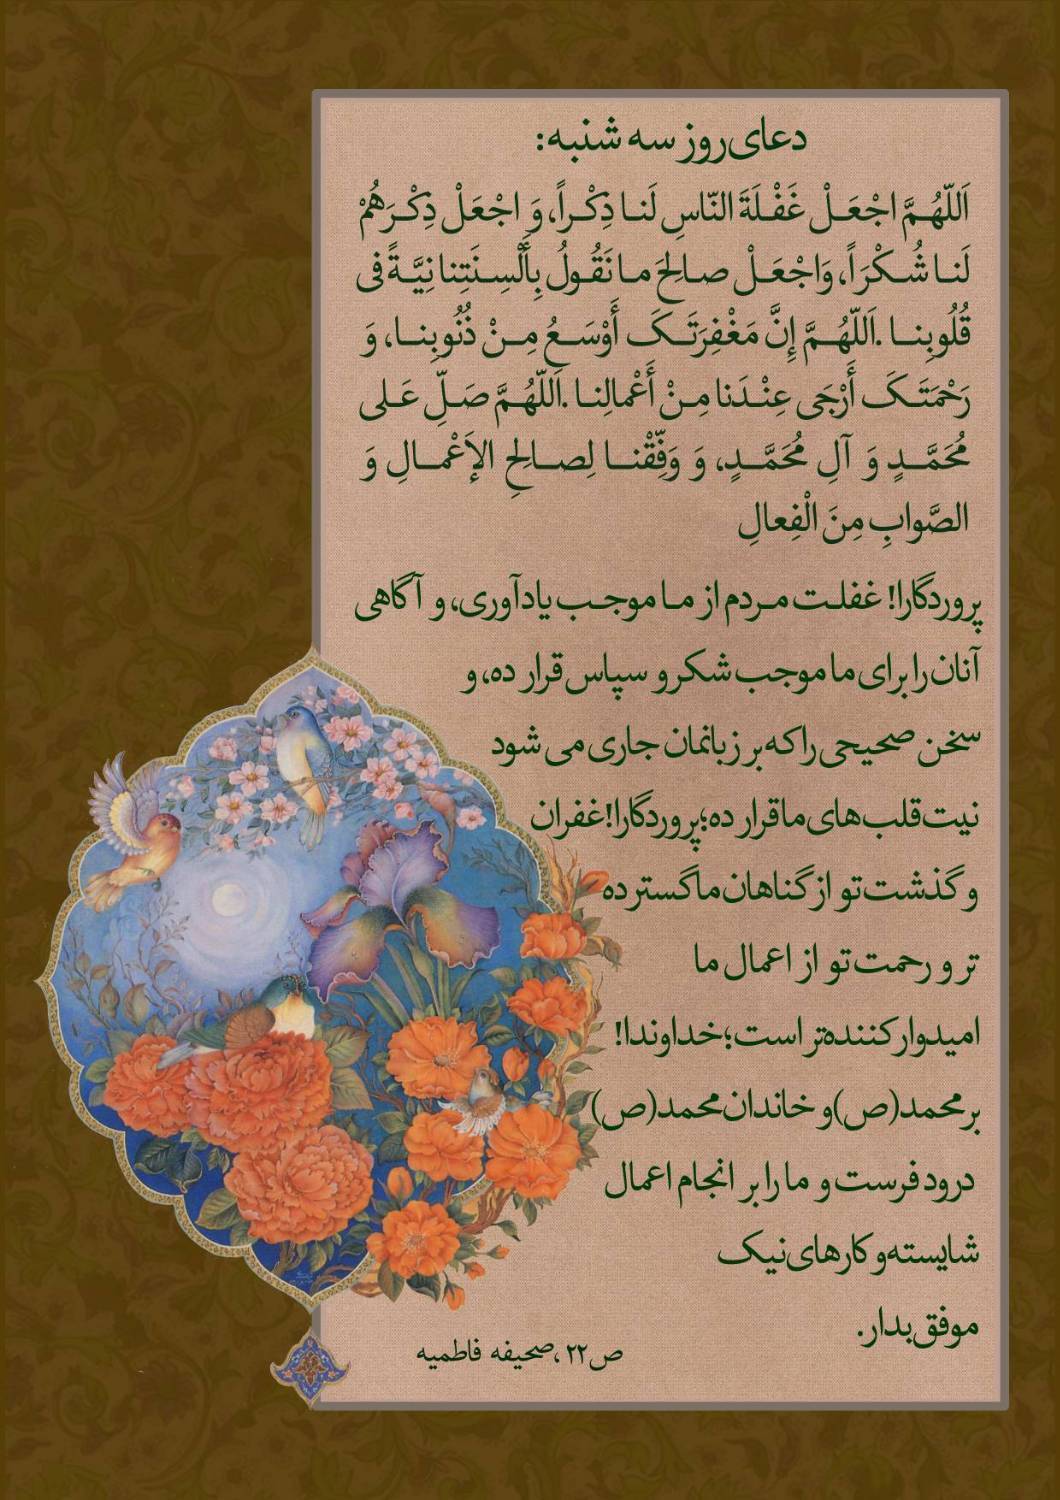 دعای روز سه شنبه:
اَللّهُمَّ اجْعَلْ غَفْلَةَ النّاسِ لَنا ذِكْراً، وَ اجْعَلْ ذِكْرَهُمْ
لَنا شُكْرَاً، وَاجْعَلْ صالِحَ ما نَقُولُ بِأَلْسِنَتِنا نِيَّةً فی
قُلُوبِنا .اَللّهُمَّ إِنَّ مَغْفِرَتَکَ أَوْسَعُ مِنْ ذُنُوبِنا، وَ
رَحْمَتَکَ أَرْجَی عِنْدَنا مِنْ أَعْمالِنا .اَللّهُمَّ صَلِّ عَلی
مُحَمَّدٍ وَ آلِ مُحَمَّدٍ، وَ وَفِّقْنا لِصالِحِ الإَعْمالِ وَ
الصَّوابِ مِنَ الْفِعالِ
پروردگارا! غفلت مردم از ما موجب یادآوری، و آگاهی
آنان را برای ما موجب شکر و سپاس قرار ده، و
سخن صحیحی را که بر زبانمان جاری می شود
نیت قلب های ما قرار ده؛پروردگارا!غفران
و گذشت تو از گناهان ما گسترده
تر و رحمت تو از اعمال ما
امیدوارکننده‌تر است؛خداوندا!
بر محمد(ص)و خاندان محمد(ص)
درود فرست و ما را بر انجام اعمال
شایسته و کارهای نیک
موفق بدار.
ص۲۲ ،صحیفه فاطمیه